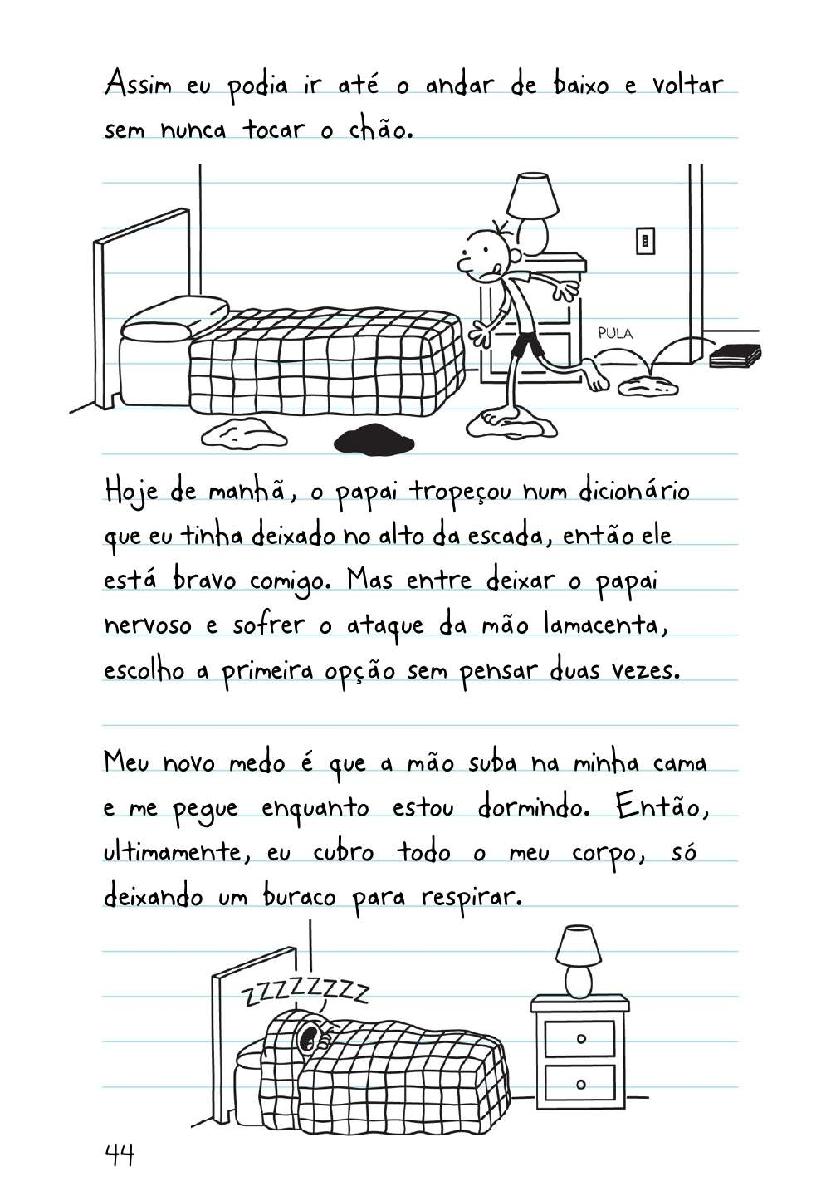 Assim eu podia ir até o andar de baixo e voltar
sem nunca tocar o chão.
PULA
Hoje de manhã, o papai tropeçou num dicionário
que eu tinha deixado no alto da escada, então ele
está bravo comigo. Mas entre deixar o papai
nervoso e sofrer o ataque da mão lamacenta,
escolho a primeira opção sem pensar duas vezes.
Meu novo medo é que a mão suba na minha cama
e me pegue enquanto estou dormindo. Então,
ultimamente, eu cubro todo o meu corpo, só
deixando um buraco para respirar.
ZZZZZZZZ
44